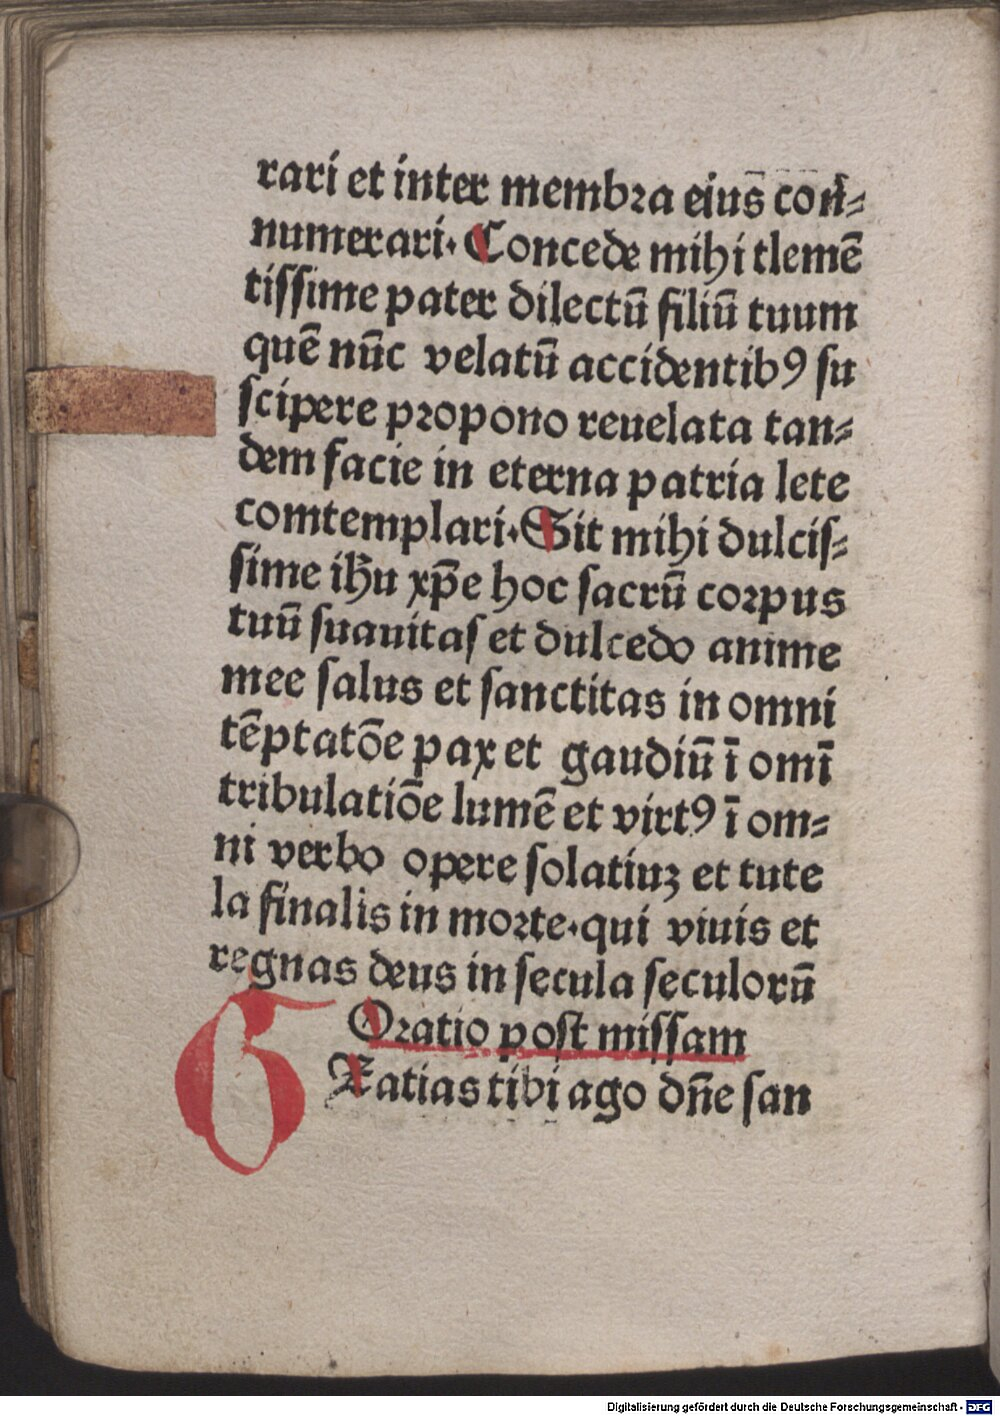 rari et inter membra eius con⸗
numerari. Concede mihi tlemē
tissime pater dilectū filiū tuum
quē nūc velatū accidentibꝰ su
scipere propono reuelata tan⸗
dem facie in eterna patria lete
comtemplari. Sit mihi dulcis⸗
sime ihū xp̄e hoc sacrū corpus
tuū suauitas et dulcedo anime
mee salus et sanctitas in omni
tēptatōe pax et gaudiū ī omī
tribulatiōe lumē et virtꝰ ī om⸗
ni verbo opere solatiuʒ et tute
la finalis in morte. qui viuis et
regnas deus in secula seculorū
Oratio post missam
GRatias tibi ago dn̄e san
Digitalisierung gefördert durch die Deutsche Forschungsgemeinschaft - DFG